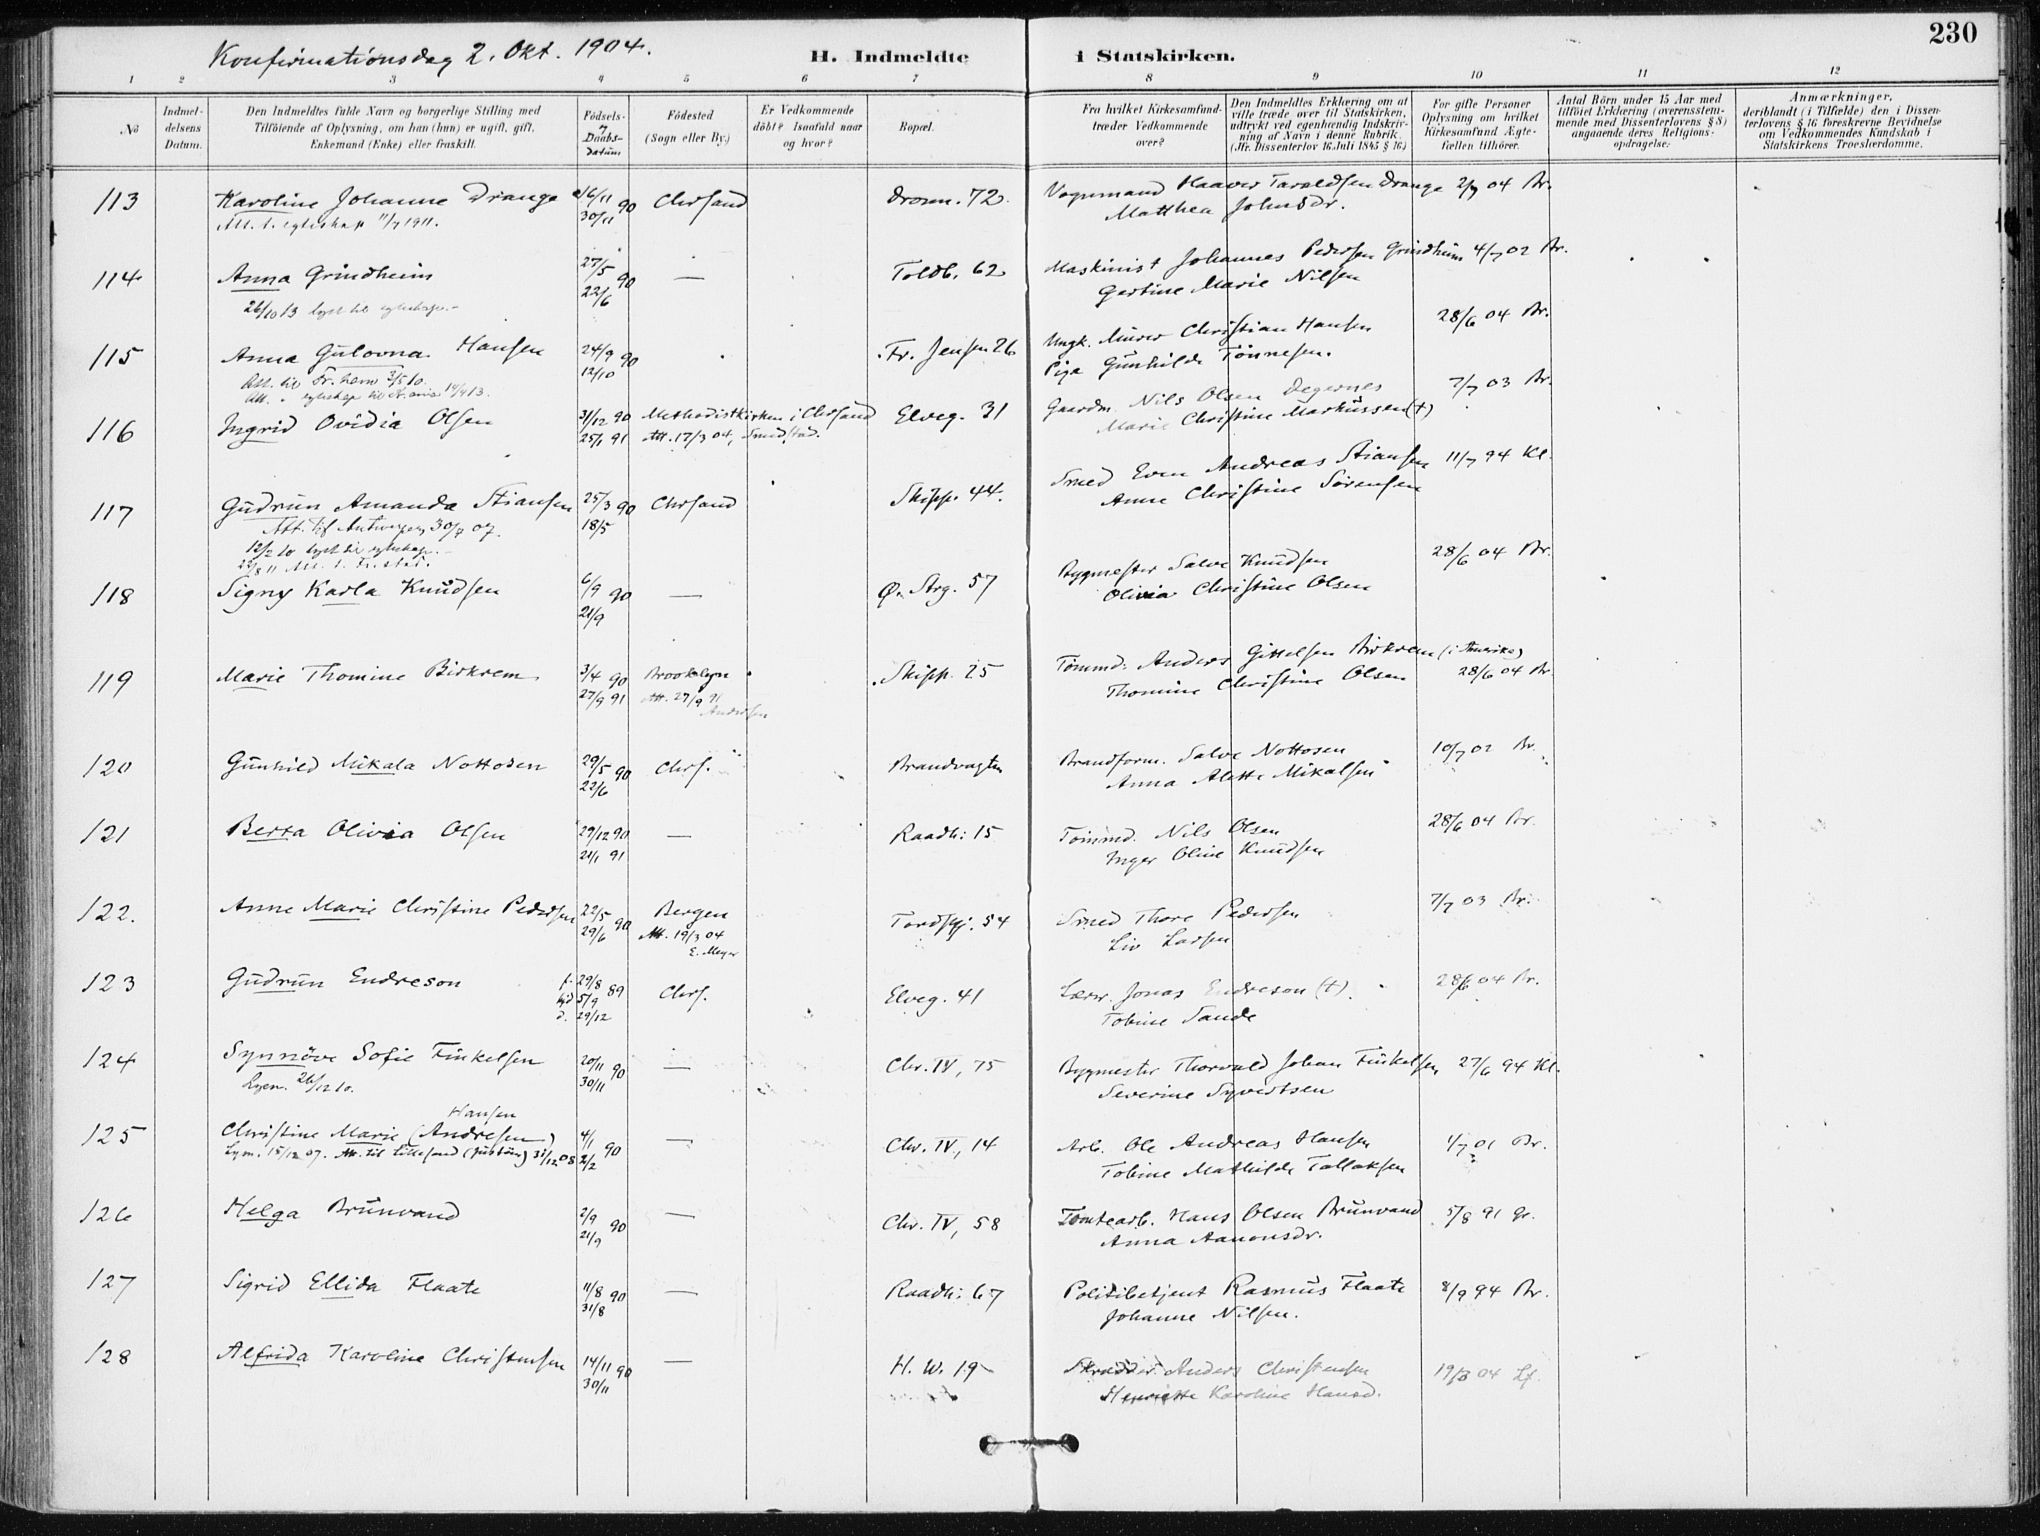 230
Konfirmationsdag 2. Okt. 1904.
H. Indmeldte i Statskirken.
1 2 3 4 5 6 7 8 9 10 11 12
No
Indmeldelsens Datum.
Den Indmeldtes fulde Navn og borgerlige Stilling med Tilföiende af Oplysning, om han (hun) er ugift, gift, Enkemand (Enke) eller fraskilt.
Födsels- og Daabs-datum
Födested (Sogn eller By.)
Er Vedkommende döbt? Isaafald naar og hvor?
Bopæl.
Fra hvilket Kirkesamfund træder Vedkommende over?
Den Indmeldtes Erklæring om at ville træde over til Statskirken, udtrykt ved egenhændig Indskrivning af Navn i denne Rubrik. (Jfr. Dissenterlov 16 Juli 1845 § 16)
For gifte Personer Oplysning om hvilket Kirkesamfund Ægtefællen tilhörer.
Antal Börn under 15 Aar med tilföiet Erklæring (overensstemmende med Dissenterlovens § 8) angaaende deres Religionsopdragelse.
Anmærkninger, deriblandt (i Tilfælde) den i Dissenterlovens § 16 foreskrevne Bevidnelse om Vedkommendes Kundskab i Statskirkens Troeslærdomme.
113 Karoline Johanne Drange 16/11 90 Chrsand Dronn. 72. Vognmand Haaver Taraldsen Drange 2/7 04 Br.
Att. t. egteskap 11/7 1911. 30/11 Matthea Johnsdr.
114 Anna Grindheim 27/5 90 — Toldb. 62 Maskinist Johannes Pedersen Grindheim 4/7 02 Br.
26/10 13 lyst til egteskap.- 22/6 Gertine Marie Nilsen
115 Anna Gulovna Hansen 24/9 90 Fr. Jensen 26 Ungk. Murer Christian Hansen 28/6 04 Br.
Att. til Fr. havn 3/5 10. 12/10 Pige Gunhilde Tönnesen.
116 Ingrid Ovidia Olsen 31/12 90 Methodistkirken i Chrsand Elveg. 31 Gaardm. Nils Olsen Degernes 7/7 03 Br.
25/1 91 Att. 17/3 04, Smidstad. Marie Christine Markussen (+)
117 Gudrun Amanda Stiansen 25/3 90 Chrsand Skipp. 44. Smed Even Andreas Stiansen 11/7 94 Kl.
Att. til Antwerpen 30/7 07. 18/5 Anne Christine Sörensen
12/2 10 lyst til egteskap.
118 Signy Karla Knudsen 6/9 90 — Ø. Strg. 57 Bygmester Salve Knudsen 28/6 04 Br.
21/9 Olivia Christine Olsen
119 Marie Thomine Birkrem 3/4 90 Brooklyn Skipp. 25 Tömmd. Anders Gittelsen Birkrem (i Amerika)
27/9 91 Att. 27/9 91 Andersen Thomine Christine Olsen 28/6 04 Br.
120 Gunhild Mikala Nottosen 29/5 90 Chrs. Brandvagten Brandform. Salve Nottosen 10/7 02 Br.
22/6 Anna Alette Mikalsen
121 Berta Olivia Olsen 29/12 90 — Raadh. 15 Tömmd. Nils Olsen 28/6 04 Br.
21/1 91 Inger Oline Knudsen
122. Anne Marie Christine Pedersen 22/5 90 Bergen Tordskj. 54 Smed Thore Pedersen 7/7 03 Br.
29/6 Att. 19/3 04 E. Meyer Liv Larsen
123 Gudrun Endreson f. 29/8 89 Chrs. Elveg. 41 Lærer. Jonas Endreson (+). 28/6 04 Br.
hjd 5/9 Tobine Sande
d. 29/12
124 Synnöve Sofie Finkelsen 20/11 90 — Chr. IV, 75 Bygmester Thorvald Johan Finkelsen 27/6 94 Kl.
26/12 10. 30/11 Severine Syvertsen
125 Christine Marie (Andresen) Hansen 4/1 90 — Chr. IV, 14 Arb. Ole Andreas Hansen 1/7 01 Br.
15/12 07. Att. til Lillesand (Justöen) 31/12 08 2/2 Tobine Mathilde Tallaksen
126 Helga Brunvand 2/9 90 — Chr. IV, 58 Tomtearb. Hans Olsen Brunvand 5/8 91 Gr.
21/9 Anna Aanonsdr.
127 Sigrid Ellida Flaate 11/8 90 — Raadh. 67 Politibetjent Rasmus Flaate 8/9 94 Br.
31/8 Johanne Nilsen.
128 Alfrida Karoline Christensen 14/11 90 — H. W. 19 Skrædder Anders Christensen 19/8 04 Lf.
30/11 Henriette Karoline Hansd.